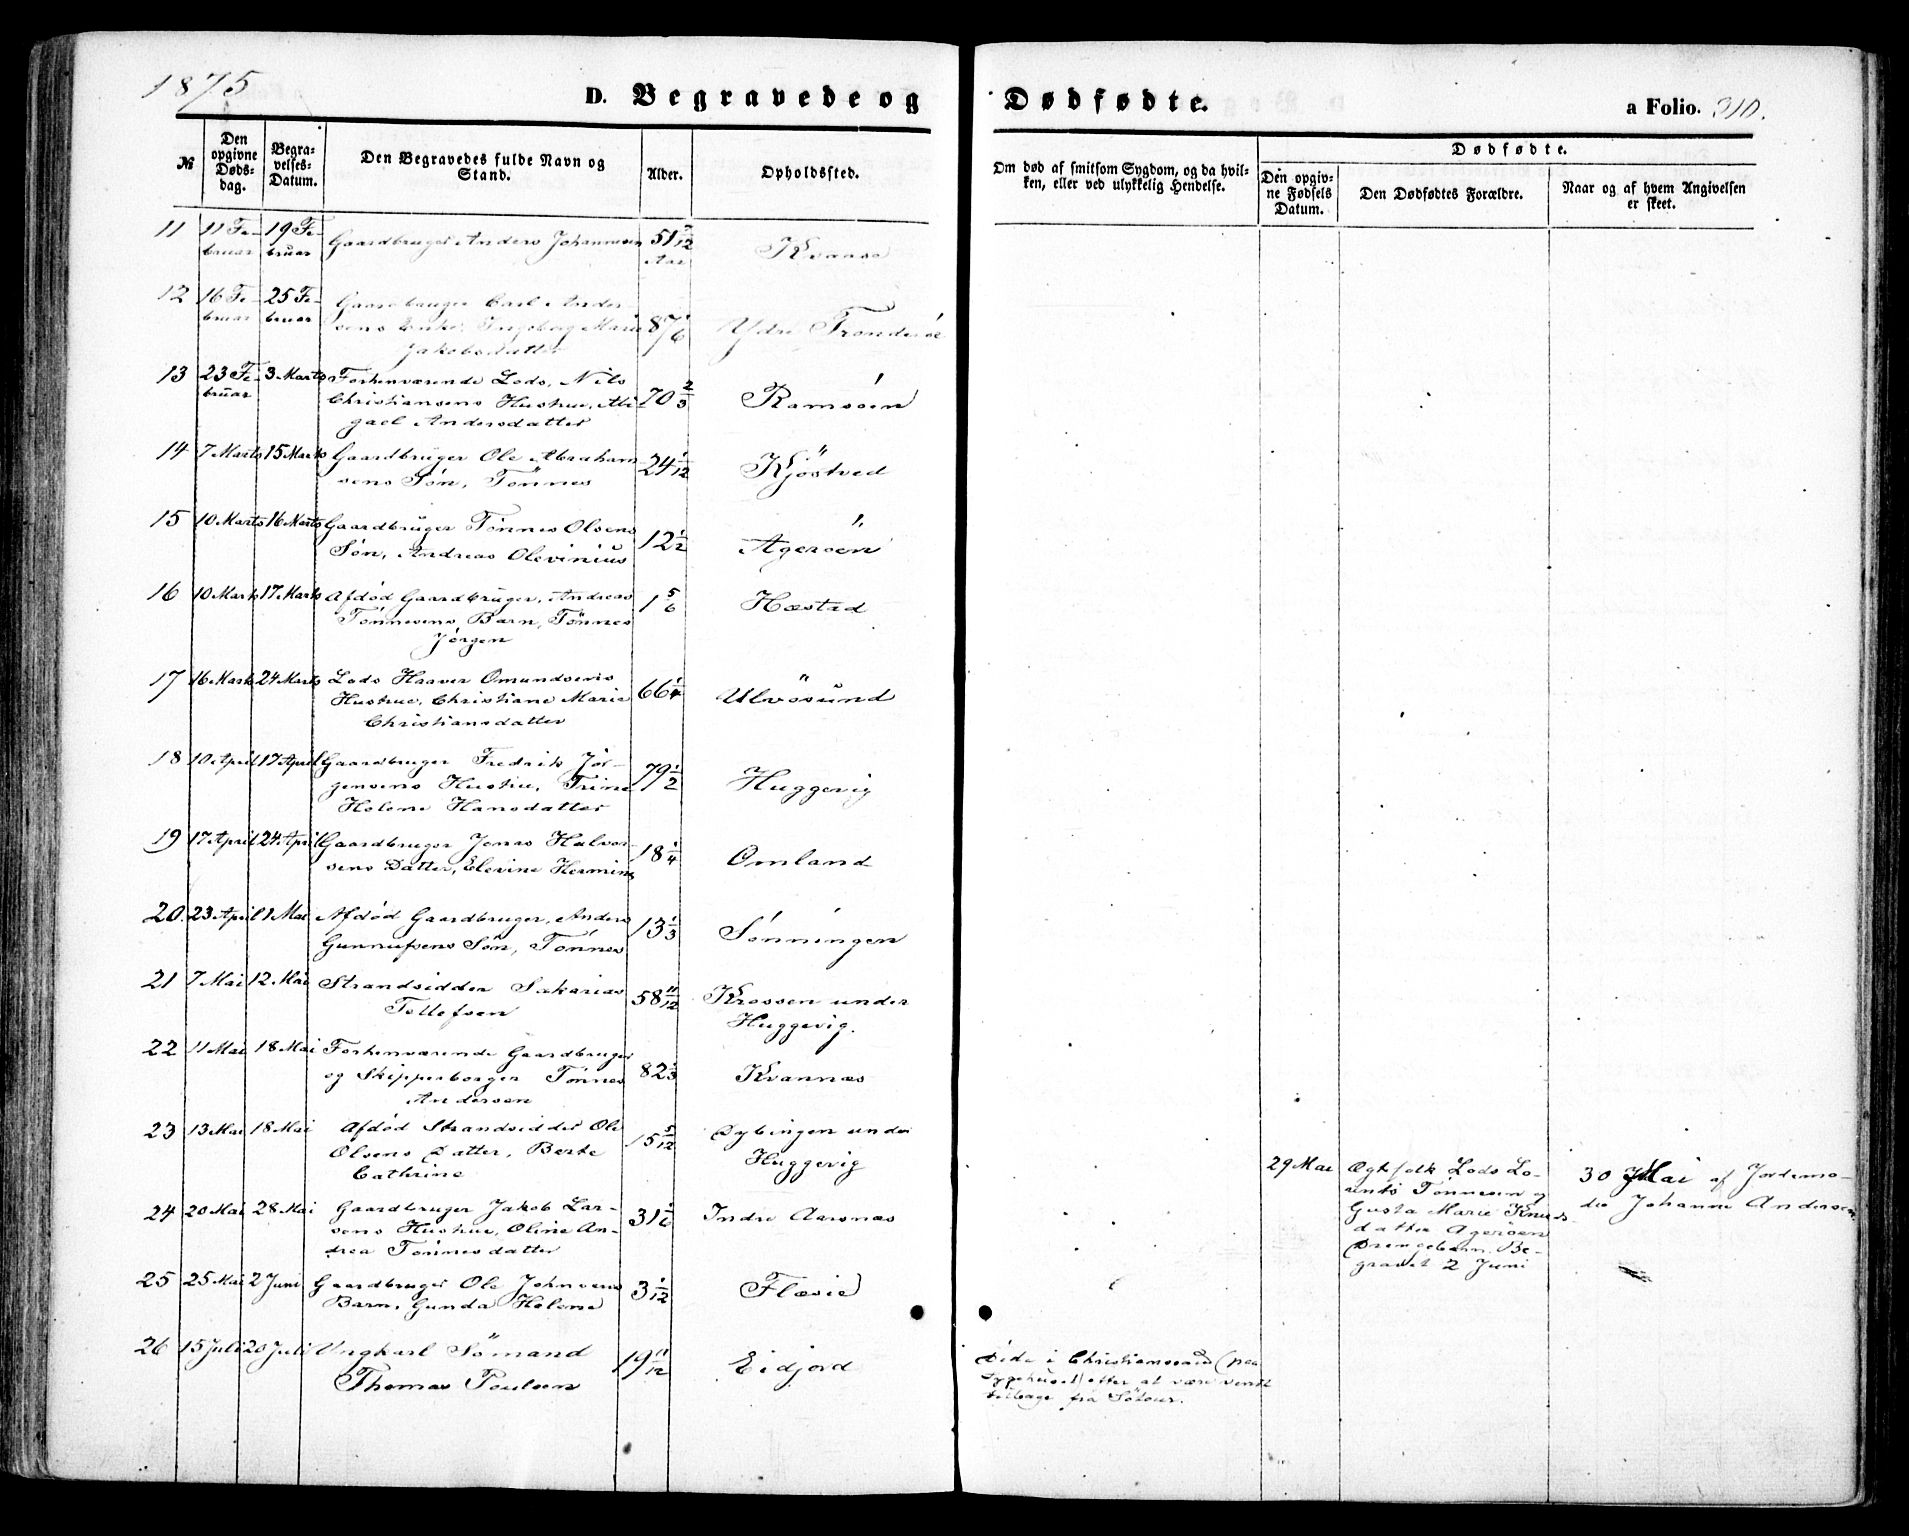 1875
D. Begravede og Dødfødte.
a Folio. 310.
№
Den opgivne Døds-dag.
Begra-velses-Datum.
Den Begravedes fulde Navn og Stand.
Alder.
Opholdssted.
Om død af smitsom Sygdom, og da hvil-
ken, eller ved ulykkelig Hendelse.
Dødfødte.
Den opgiv-
ne Fødsels
Datum.
Den Dødfødtes Forældre.
Naar og af hvem Angivelsen
er skeet.
11 11 Fe- 19 Fe- Gaardbruger Anders Johannesen 51 7/12 Kvaase
bruar bruar Aar
12 16 Fe- 25 Fe- Gaardbruger Carl Ander-
bruar bruar sens Enke, Ingeborg Marie 87 1/6 Ydre Tronderöe
Jakobsdatter
13 23 Fe- 3 Marts Forhenværende Lods, Nils
bruar Christiansens Hustrue, Abi- 70 2/3 Ramsöen
gael Andersdatter
14 7 Marts 15 Marts Gaardbruger Ole Abraham 24 1/12 Kjöstved
sens Søn, Tönnes
15 10 Marts 16 Marts Gaardbruger Tønnes Olsens 12 1/2 Ageröen
Søn, Andreas Olevinius
16 10 Marts 17 Marts Afdød Gaardbruger, Andreas 1 5/6 Hæstad
Tønnesens Barn, Tönnes
Jørgen
17 16 Marts 24 Marts Lods Haaver Omundsens
Hustrue, Christiane Marie 66 1/4 Ulvösund
Christiansdatter
18 10 April 17 April Gaardbruger Fredrik Jør-
gensens Hustru, Trine 79 1/2 Huggevig
Helene Hansdatter
19 17 April 24 April Gaardbruger Jonas Halvor-
sens Datter, Elevine Hermine 18 1/4 Omland
20. 23 April 1 Mai Afdød Gaardbruger, Anders 13 1/3 Sønningen
Gunnufsens Søn, Tønnes
21 7 Mai 12 Mai Strandsidder Sakarias 58 11/12 Krossen under
Tollefsen Huggevig.
22 11 Mai 18 Mai Forhenværende Gaardbruger
og Skipperborger Tønnes 82 1/3 Kvannæs
Andersen
23 13 Mai 18 Mai Afdød Strandsidder Ole 15 5/12 Dybingen under
Olsens Datter, Berte Huggevig
Cathrine
29 Mai Ægtefolk Lods Lo-
rents Tønnesen og
Gusta Marie Knuds
datter Ageröen
Drengebarn. Be-
gravet 2 Juni
30 Mai af Jordemo-
der Johanne Andersen
24 20 Mai 28 Mai Gaardbruger Jakob Lar-
sens Hustrue, Oline An- 31 1/6 Indre Aarsnæs
drea Tønnesdatter
25 25 Mai 2 Juni Gaardbruger Ole Johnsens 3 1/12 Flæsie
Barn, Gunda Helene
26 15 Juli 20 Juli Ungkarl Sömand 19 11/12 Eidjord
Thomas Poulsen
Døde i Christianssand (paa
Sygehuset) efter at være vendt
tilbage fra Sötour.